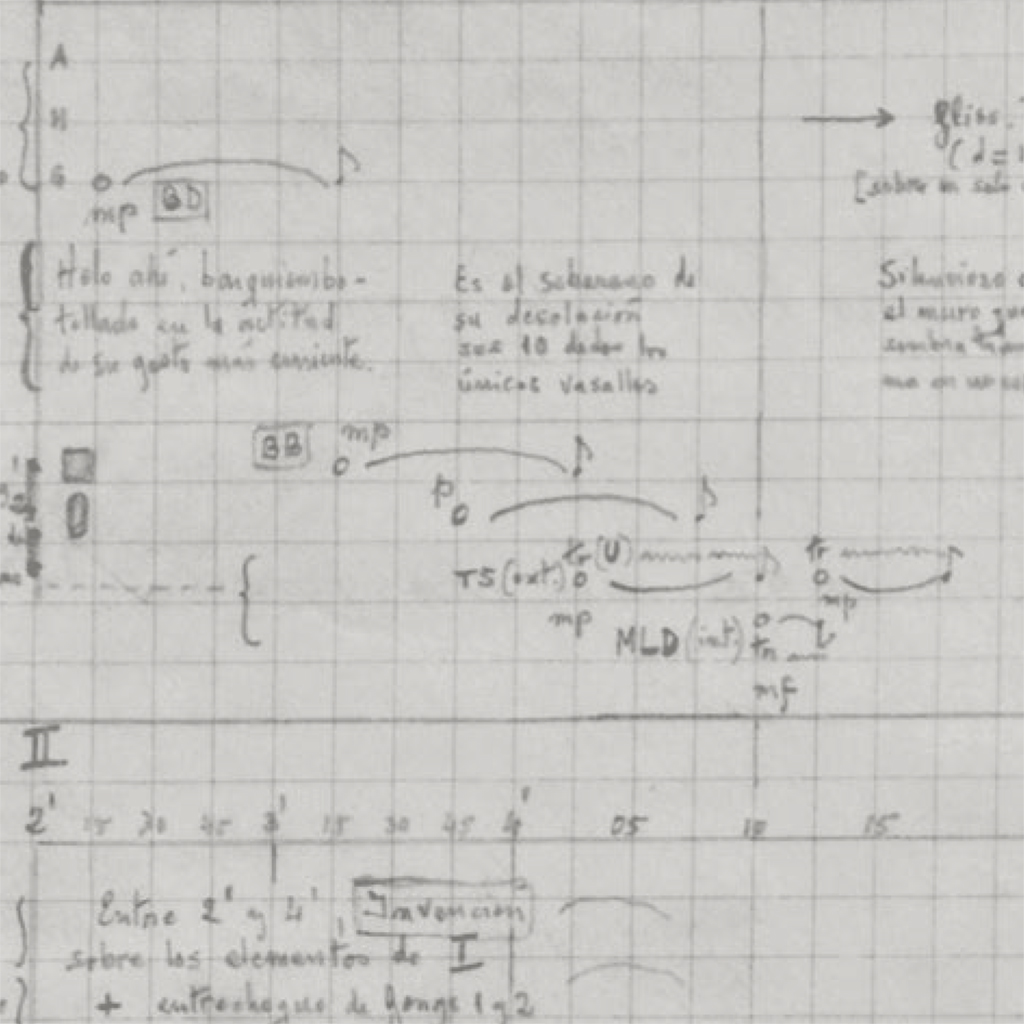 A
H
G
mp BD
→ gliss.
(d =
[sobre un solo
Helo ahí,
en la actitud
de su gesto más
Es el soberano de
su desolación
sus 10 dedos los
únicos vasallos
Silencioso
el muro que
sombra
BB mp
p
tr (U) tr
TS (ext.)
mp mp
MLD (int.) tr
mf
II
2' 15 30 45 3' 15 30 45 4' 05 10 15
Entre 2' y 4', Invención
sobre los elementos de I
+ entrechoque de Gongs 1 y 2